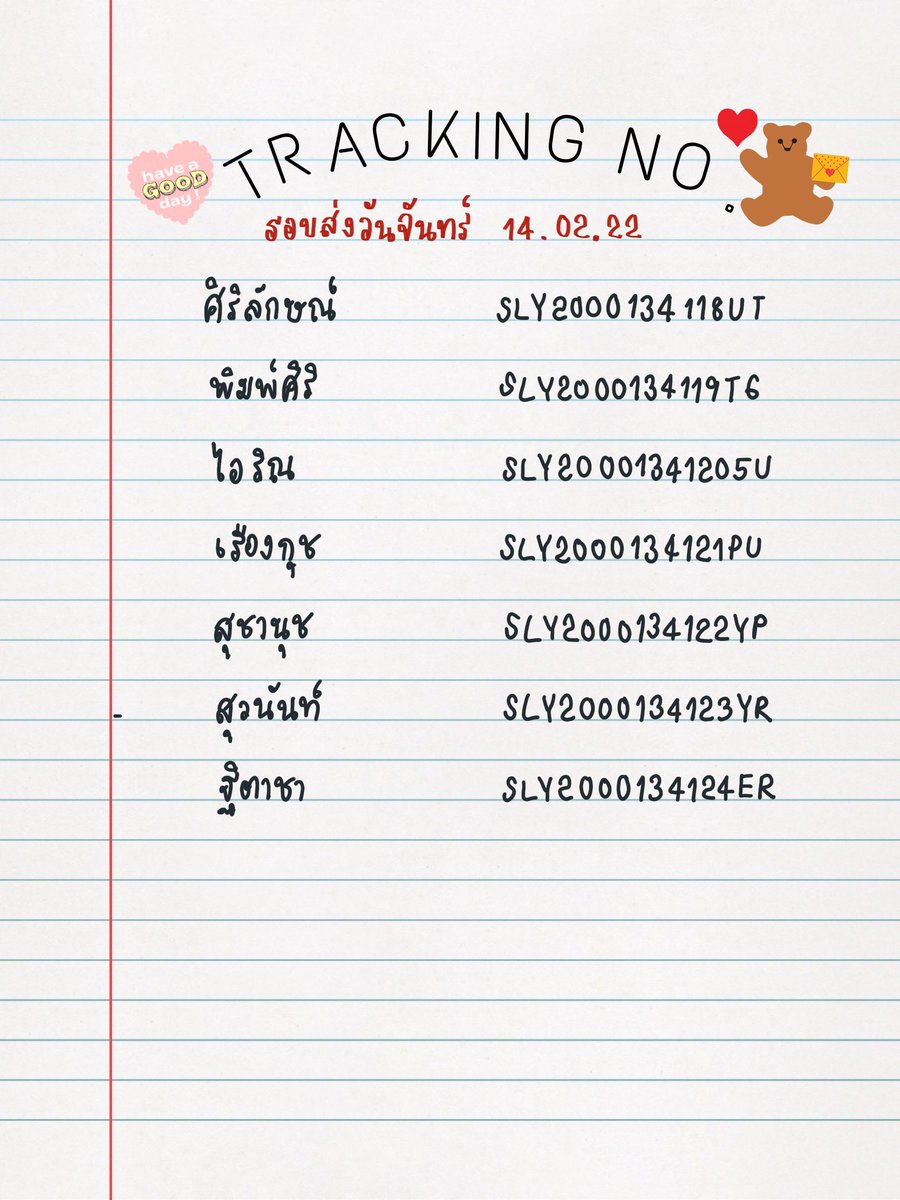 TRACKING NO.
have a
GOOD
day!
รอบส่งวันจันทร์ 14.02.22
ศิริลักษณ์ SLY2000134118UT
พิมพ์ศิริ SLY2000134119T6
ไอริณ SLY20001341205U
เรืองกุช SLY2000134121PU
สุชานุช SLY2000134122YP
สุวนันท์ SLY2000134123YR
ฐิตาชา SLY2000134124ER